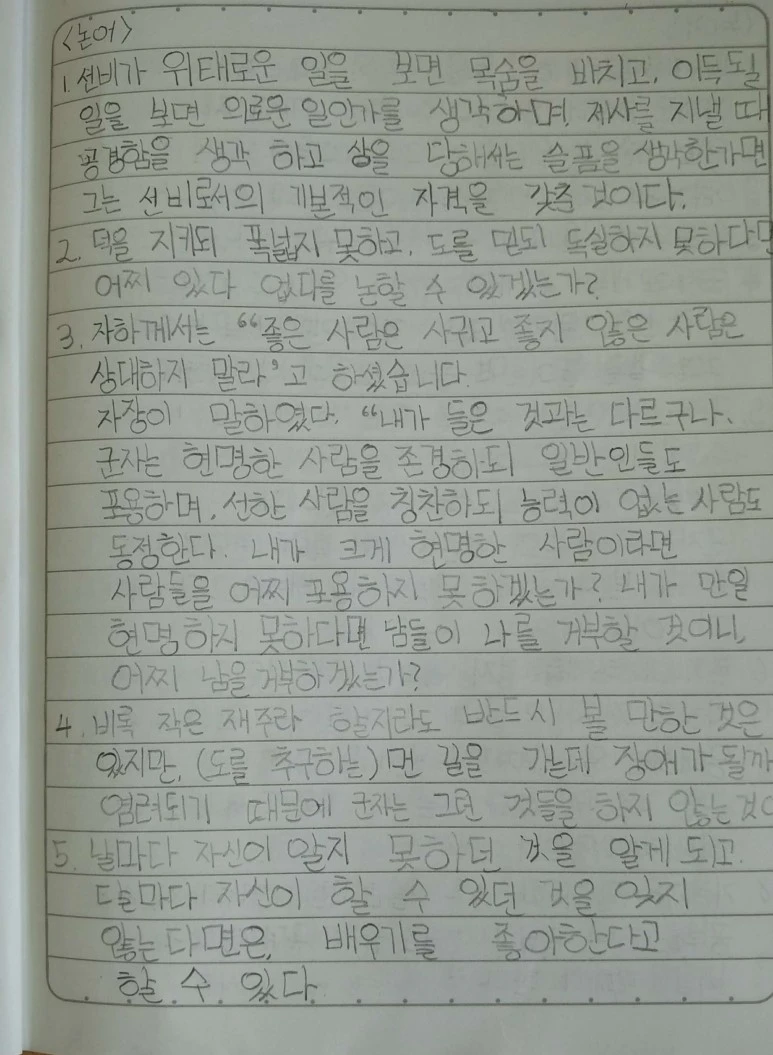 <논어>
1. 선비가 위태로운 일을 보면 목숨을 바치고, 이득 될
일을 보면 의로운 일인가를 생각하며, 제사를 지낼 때
공경함을 생각 하고 상을 당해서는 슬픔을 생각한가면
그는 선비로서의 기본적인 자격을 갖춘 것이다.
2. 덕을 지키되 폭넓지 못하고, 도를 믿되 독실하지 못하다면
어찌 있다 없다를 논할 수 있겠는가?
3. 자하께서는 “좋은 사람은 사귀고 좋지 않은 사람은
상대하지 말라’고 하셨습니다.
자장이 말하였다. “내가 들은 것과는 다르구나.
군자는 현명한 사람을 존경하되 일반인들도
포용하며, 선한 사람을 칭찬하되 능력이 없는 사람도
동정한다. 내가 크게 현명한 사람이라면
사람들을 어찌 포용하지 못하겠는가? 내가 만일
현명하지 못하다면 남들이 나를 거부할 것이니,
어찌 남을 거부하겠는가?
4. 비록 작은 재주라 할지라도 반드시 볼 만한 것은
있지만, (도를 추구하는) 먼 길을 가는데 장애가 될까
염려되기 때문에 군자는 그런 것들을 하지 않는 것
5. 날마다 자신이 알지 못하던 것을 알게 되고.
달마다 자신이 할 수 있던 것을 잊지
않는다면은, 배우기를 좋아한다고
할 수 있다.